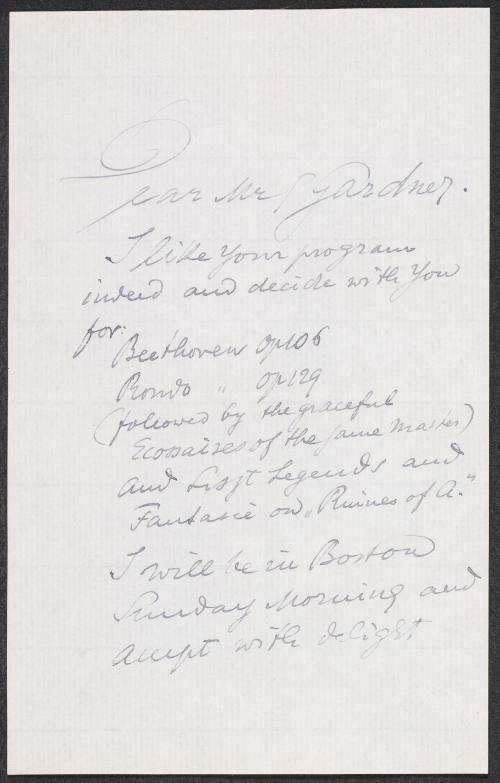 Dear Mrs Gardner.
I like your program
indeed and decide with You
for:
Beethoven Op 106
Rondo " op 129
(followed by the graceful
Ecossaises of the same Master)
and Liszt Legends and
Fantasie on „Ruines of A."
I will be in Boston
Sunday Morning and
accept with delight